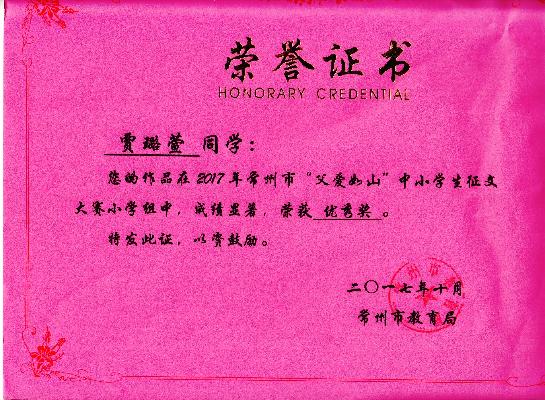 荣誉证书
HONORARY CREDENTIAL
贾璐萱 同学：
您的作品在2017年常州市“父爱如山”中小学生征文
大赛小学组中，成绩显著，荣获 优秀奖 。
特发此证，以资鼓励。
二〇一七年十月
常州市教育局